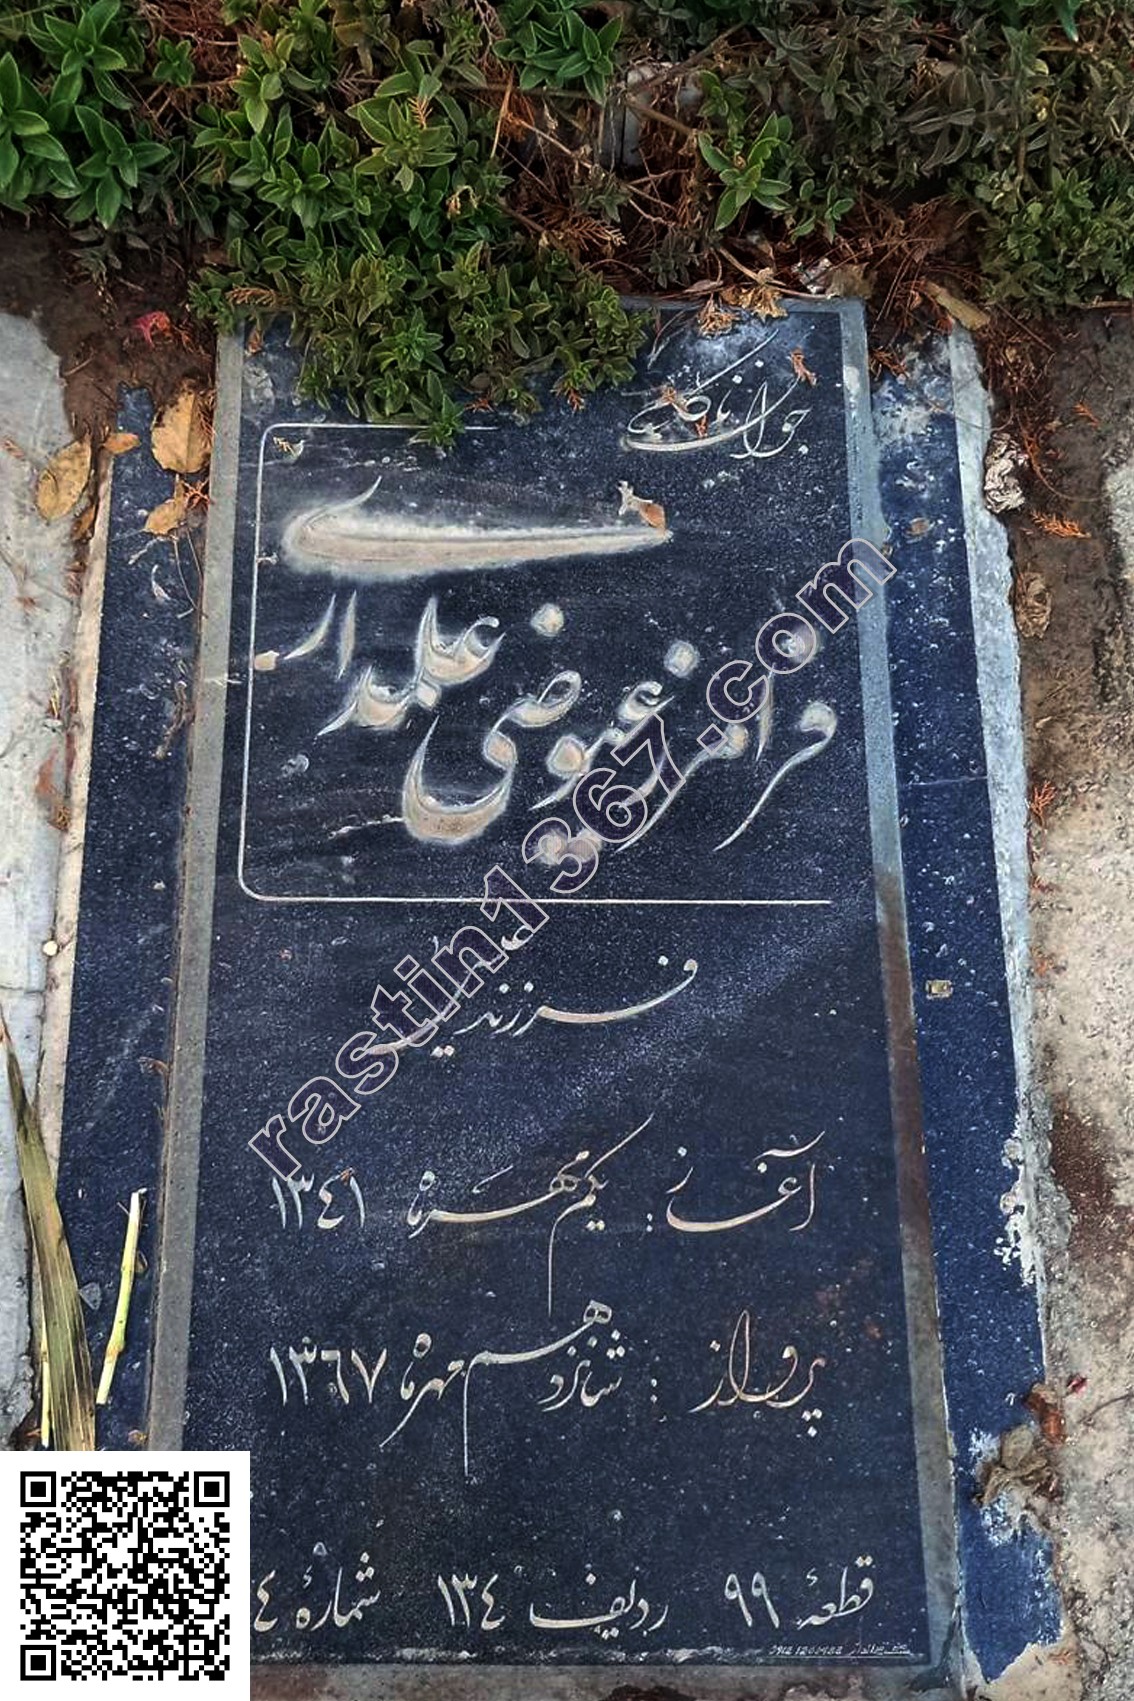 جوان ناکام
فرامرز عوضی علمداری
فرزند
آغاز : یکم مهرماه ۱۳۴۱
پرواز : شانزدهم مهرماه ۱۳۶۷
قطعهٔ ۹۹ ردیف ۱۳۴ شمارهٔ ۴
rastin1367.com